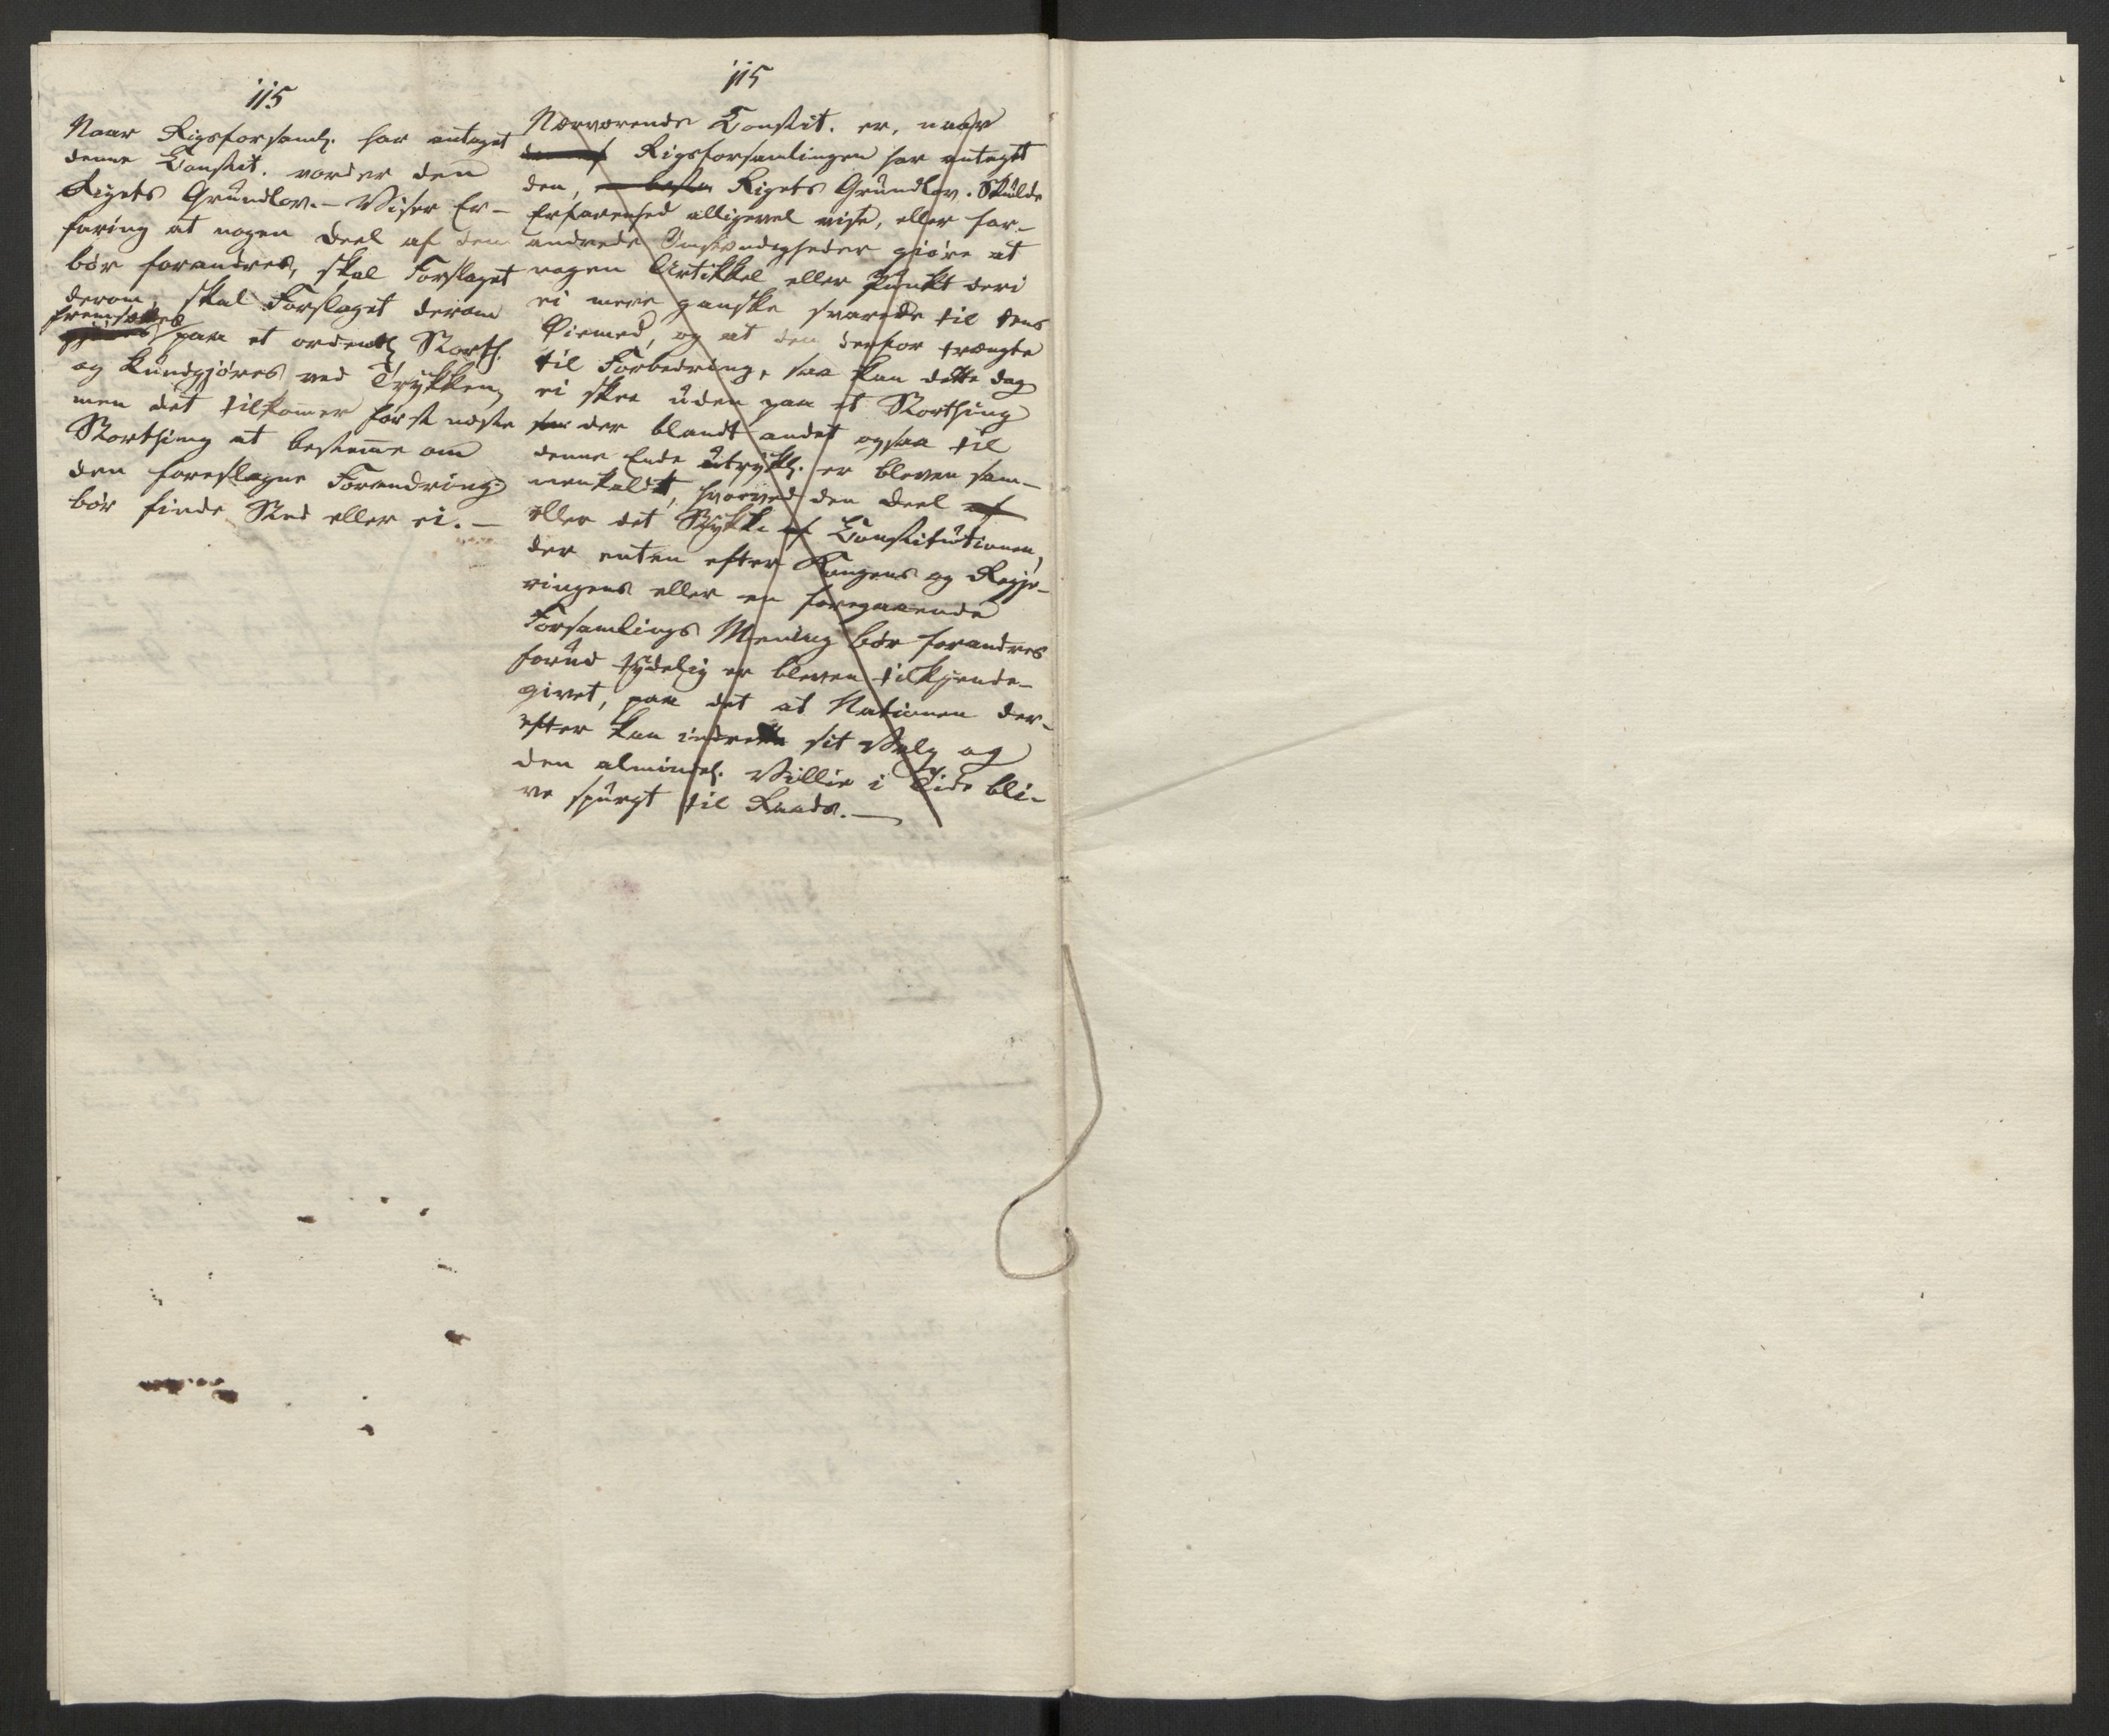 115
Naar Rigsforsaml. har antaget
denne Constit. vorder den
Rigets Grundlov. – Viser Er-
faring at nogen Deel af den
bör forandres, skal Forslaget
derom, skal Forslaget derom
fremsættes
paa et ordentl. Storth.
og kundgjöres ved Trykken,
men det tilkommer först næste
Storthing at bestemme om
den foreslagne Forandring
bör finde Sted eller ei. –
115
Nærværende Constit. er, naar
Rigsforsamlingen har antagt
den, Rigets Grundlov. Skulde
Erfarenhed alligevel vise, eller for-
andrede Omstændigheder giöre at
nogen Artikkel eller Punkt deri
ei mere ganske svarede til dens
Öiemed, og at den derfor trængte
til Forbedring, saa kan dette dog
ei skee uden paa et Storthing
der blandt andet ogsaa til
denne Ende udtrykl. er bleven sam-
menkaldt, hvorved den Deel af
eller det Stykke af Constitutionen,
der enten efter Kongens og Regje-
ringens eller en foregaaende
Forsamlings Mening bör forandres
forud tydelig er bleven tilkjende-
givet, paa det at Nationen der-
efter kan indrette sit Valg og
den almindel. Villie i Tide bli-
ve spurgt til Raads. –